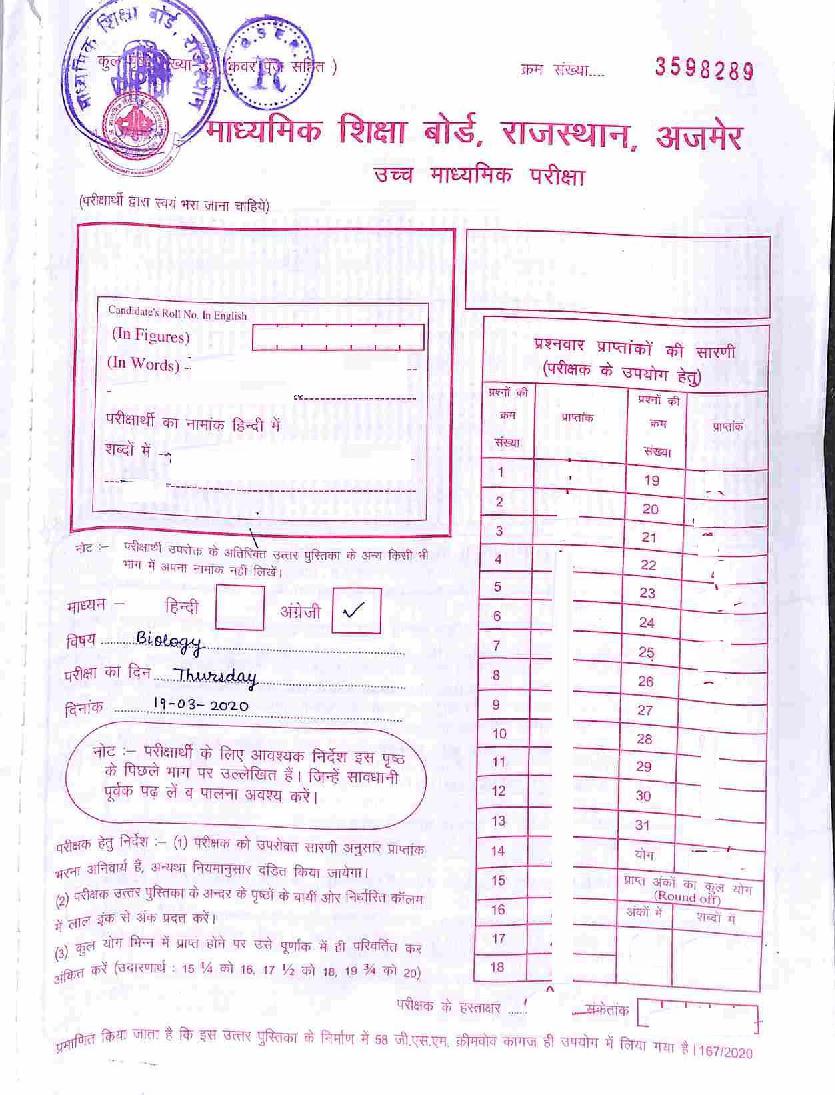 माध्यमिक शिक्षा बोर्ड, राजस्थान
B.S.E.R.
R
कुल संख्या 32 (कवर पृष्ठ सहित )
क्रम संख्या.... 3598289
माध्यमिक शिक्षा बोर्ड, राजस्थान, अजमेर
उच्च माध्यमिक परीक्षा
(परीक्षार्थी द्वारा स्वयं भरा जाना चाहिये)
Candidate's Roll No. In English
(In Figures)
(In Words)
परीक्षार्थी का नामांक हिन्दी में
शब्दों में
नोट :– परीक्षार्थी उपरोक्त के अतिरिक्त उत्तर पुस्तिका के अन्य किसी भी
भाग में अपना नामांक नहीं लिखें।
माध्यम – हिन्दी अंग्रेजी ✓
विषय Biology
परीक्षा का दिन Thursday
दिनांक 19-03-2020
नोट :– परीक्षार्थी के लिए आवश्यक निर्देश इस पृष्ठ
के पिछले भाग पर उल्लेखित हैं। जिन्हें सावधानी
पूर्वक पढ़ लें व पालना अवश्य करें।
परीक्षक हेतु निर्देश :– (1) परीक्षक को उपरोक्त सारणी अनुसार प्राप्तांक
भरना अनिवार्य है, अन्यथा नियमानुसार दंडित किया जायेगा।
(2) परीक्षक उत्तर पुस्तिका के अन्दर के पृष्ठों के बायीं ओर निर्धारित कॉलम
में लाल इंक से अंक प्रदत्त करें।
(3) कुल योग भिन्न में प्राप्त होने पर उसे पूर्णांक में ही परिवर्तित कर
अंकित करें (उदाहरणार्थ : 15 ¼ को 16, 17 ½ को 18, 19 ¾ को 20)
प्रश्नवार प्राप्तांकों की सारणी
(परीक्षक के उपयोग हेतु)
प्रश्नों की क्रम संख्या प्राप्तांक प्रश्नों की क्रम संख्या प्राप्तांक
1 19
2 20
3 21
4 22
5 23
6 24
7 25
8 26
9 27
10 28
11 29
12 30
13 31
14 योग
15 प्राप्त अंकों का कुल योग (Round off)
16 अंकों में शब्दों में
17
18
परीक्षक के हस्ताक्षर ..... संकेतांक
प्रमाणित किया जाता है कि इस उत्तर पुस्तिका के निर्माण में 58 जी.एस.एम. क्रीमवोव कागज ही उपयोग में लिया गया है। 167/2020